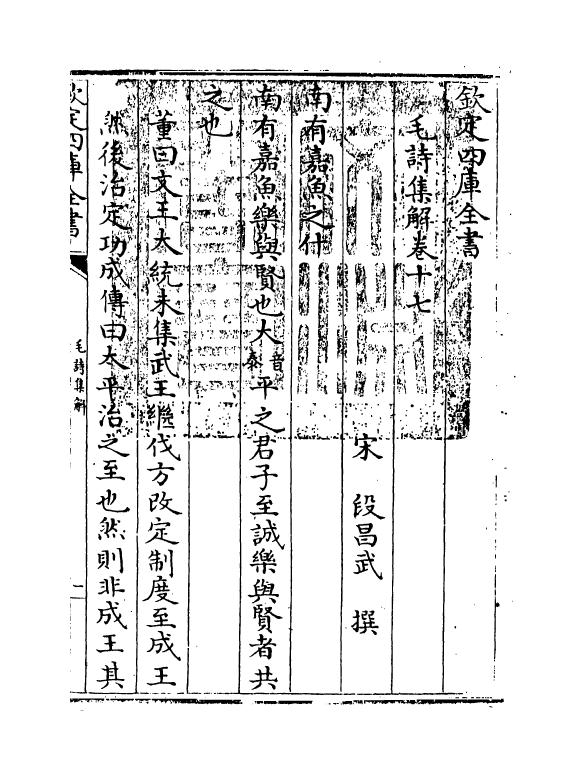 欽定四庫全書
毛詩集解卷十七
宋 段昌武 撰
南有嘉魚之什
南有嘉魚樂與賢也大音泰平之君子至誠樂與賢者共
之也
董曰文王大統未集武王繼伐方改定制度至成王
然後治定功成傳曰太平治之至也然則非成王其
欽定四庫全書
毛詩集解
一